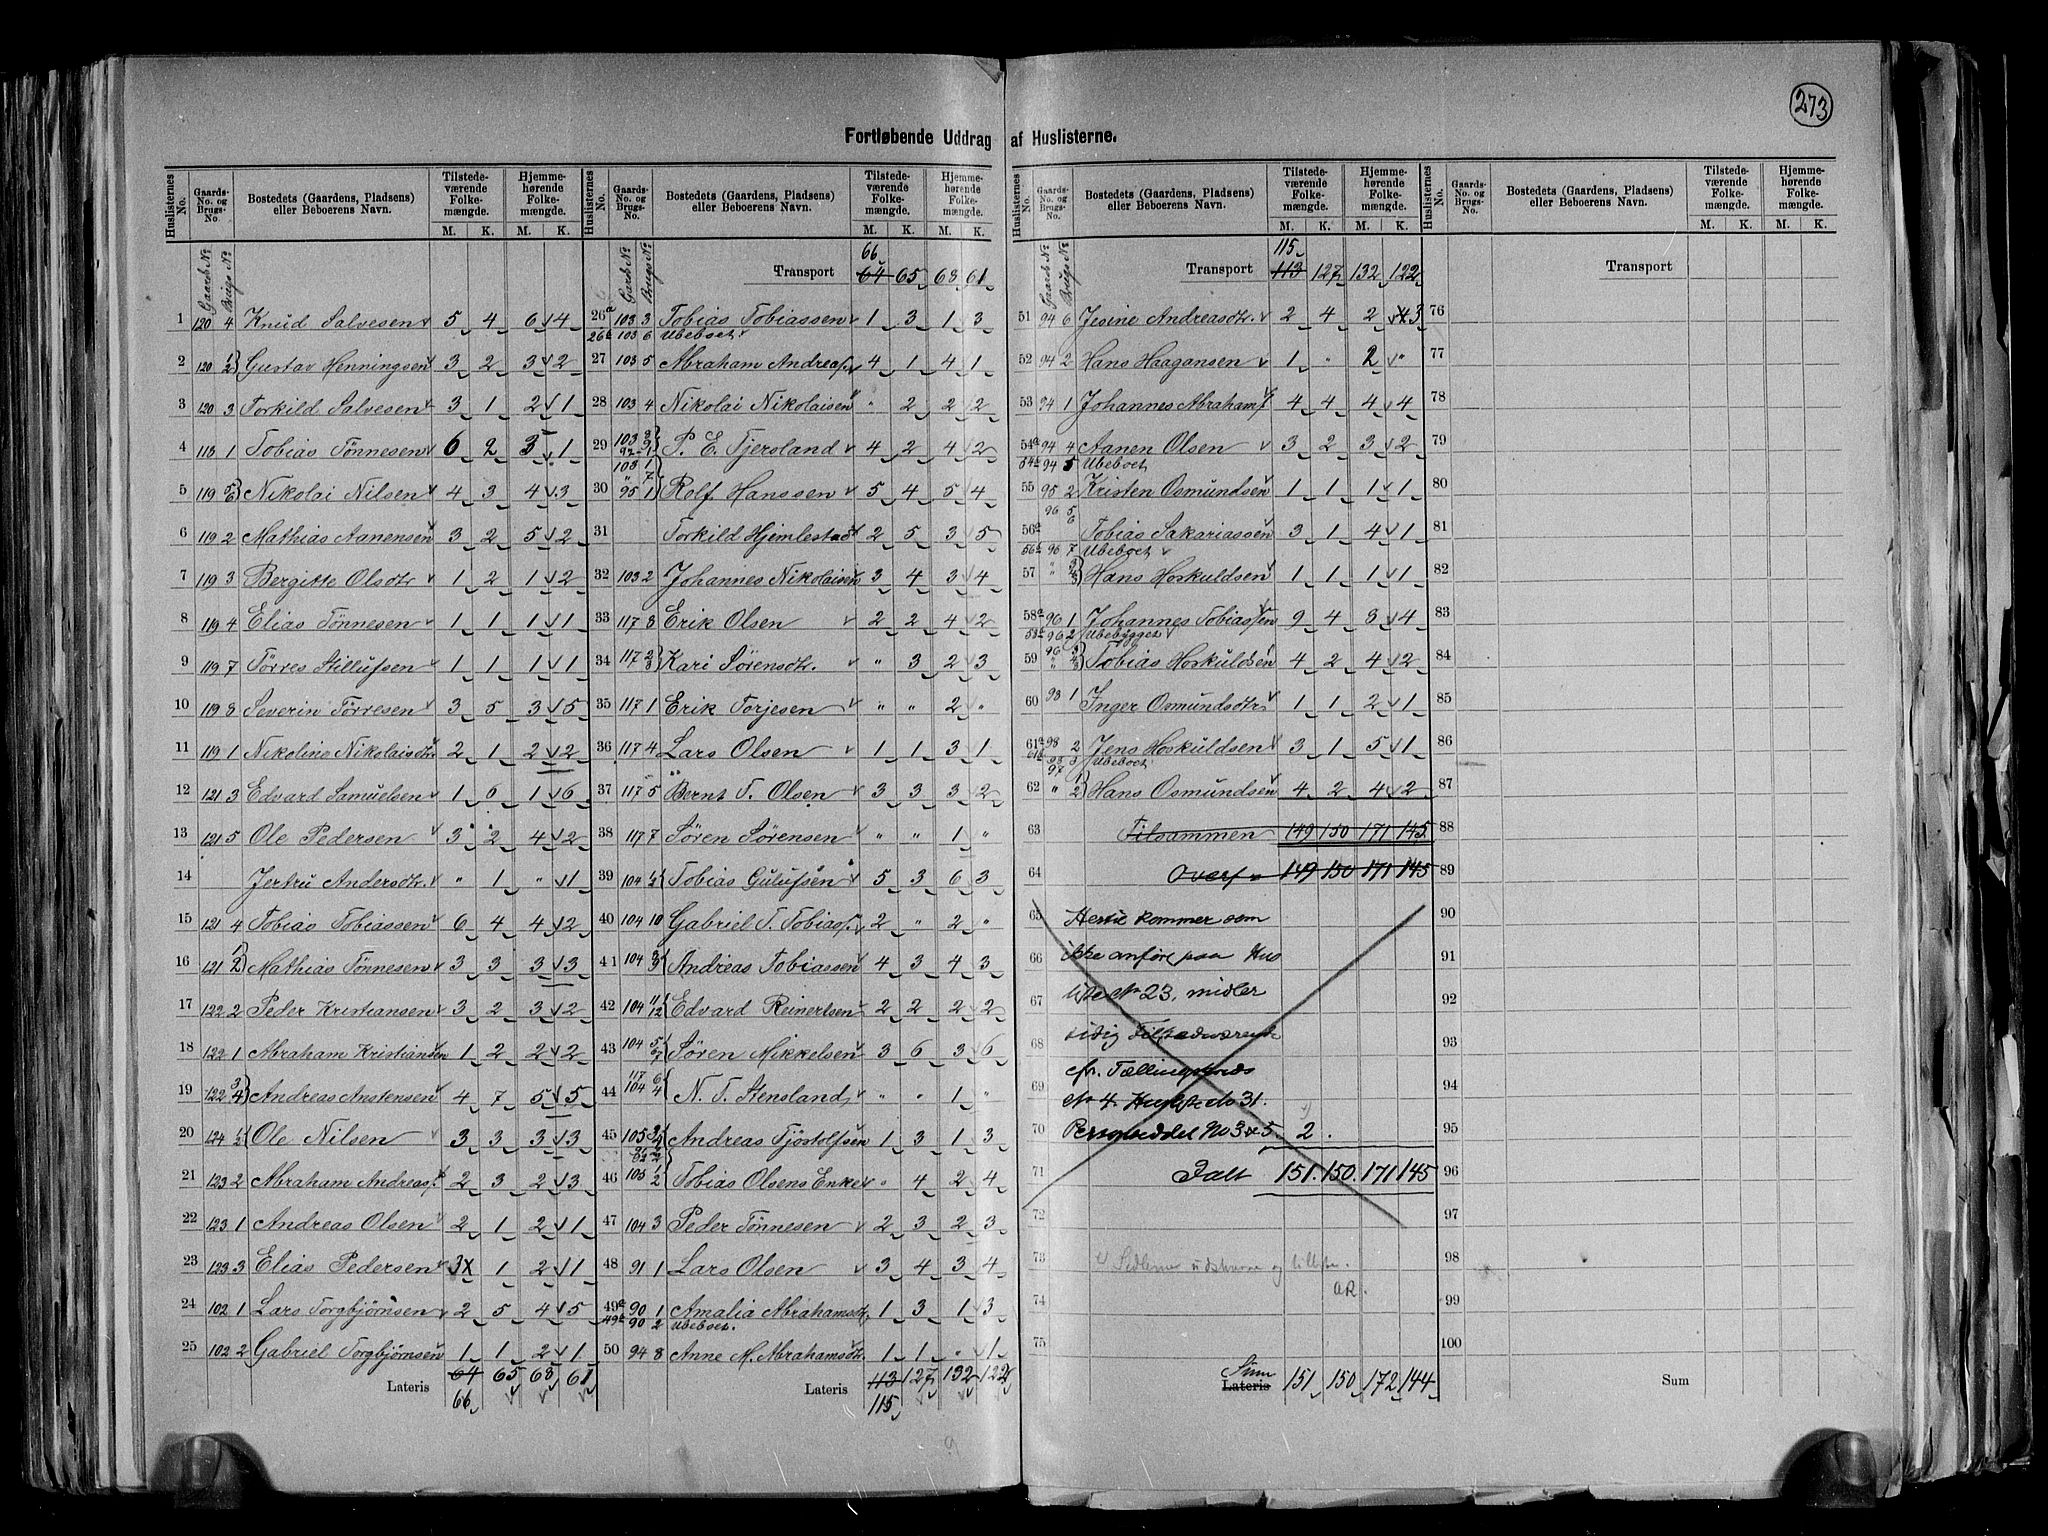 273
Fortløbende Uddrag af Huslisterne.
Huslisternes No. Gaards-No. og Brugs-No. Bostedets (Gaardens, Pladsens) eller Beboerens Navn. Tilstede-værende Folke-mængde. Hjemme-hørende Folke-mængde.
M. K. M. K.
Gaards No Brugs No
1 120 4 Knud Salvesen 5 4 6 4
2 120 1/2 Gustav Henningsen 3 2 3 2
3 120 3 Torkild Salvesen 3 1 2 1
4 118 1 Tobias Tönnesen 6 2 3 1
5 119 5/6 Nikolai Nilsen 4 3 4 3
6 119 2 Mathias Aanensen 3 2 5 2
7 119 3 Bergitte Olsdtr 1 2 1 2
8 119 4 Elias Tönnesen 1 1 1 1
9 119 7 Törres Stillufsen 1 1 1 1
10 119 8 Severin Törresen 3 5 3 5
11 119 1 Nikoline Nikolaisdtr 2 1 2 2
12 121 3 Edvard Samuelsen 1 6 1 6
13 121 5 Ole Pedersen 3 2 4 2
14 Jertru Andersdtr. " 1 " 1
15 121 4 Tobias Tobiassen 6 4 4 2
16 121 1/2 Mathias Tönnesen 3 3 3 3
17 122 2 Peder Kristiansen 3 2 3 2
18 122 1 Abraham Kristiansen 1 2 2 2
19 122 3/4 Andreas Anstensen 4 7 5 5
20 124 1/2 Ole Nilsen 3 3 3 3
21 123 2 Abraham Andreas. 2 3 2 3
22 123 1 Andreas Olsen 2 1 2 1
23 123 3 Elias Pedersen 3 1 2 1
24 102 1 Lars Torgbjørnsen 2 5 4 5
25 102 2 Gabriel Torgbjørnsen 1 1 2 1
Lateris 64 65 68 61
66
Huslisternes No. Gaards-No. og Brugs-No. Bostedets (Gaardens, Pladsens) eller Beboerens Navn. Tilstede-værende Folke-mængde. Hjemme-hørende Folke-mængde.
M. K. M. K.
66
Transport 64 65 68 61
26a 103 3 Tobias Tobiassen 1 3 1 3
26b 103 6 Ubeboet.
27 103 5 Abraham Andreas. 4 1 4 1
28 103 4 Nikolai Nikolaisen " 2 2 2
29 103 8/9 P. E. Tjersland 4 2 4 2
30 95 1 Rolf Hanssen 5 4 5 4
31 Torkild Hjemlestad 2 5 3 5
32 103 2 Johannes Nikolaisen 3 4 3 4
33 117 8 Erik Olsen 2 2 4 2
34 117 2/3 Kari Sörensdtr. " 3 2 3
35 117 1 Erik Torjesen " " 2 "
36 117 4 Lars Olsen 1 1 3 1
37 117 5 Bernt T. Olsen 3 3 3 2
38 117 7 Sören Sörensen " " 1 "
39 104 1/2 Tobias Gulufsen 5 3 6 3
40 104 10 Gabriel T. Tobias. 2 " 2 "
41 104 Andreas Tobiassen 4 3 4 3
42 104 11/12 Edvard Reinertsen 2 2 2 2
43 104 Sören Mikkelsen 3 6 3 6
44 117 6 104 4 N. T. Stensland 	" " 1 "
45 105 Andreas Tjöstolfsen 1 3 1 3
46 105 1/2 Tobias Olsens Enke " 4 2 4
47 104 3 Peder Tönnesen 2 3 2 3
48 91 1 Lars Olsen 3 4 3 4
49a 90 1 Amalia Abrahamsdtr. 1 3 1 3
49b 90 2 Ubeboet.
50 94 8 Anne M. Abrahamsdtr. 1 1 " 1
Lateris 113 127 132 122
115
Huslisternes No. Gaards-No. og Brugs-No. Bostedets (Gaardens, Pladsens) eller Beboerens Navn. Tilstede-værende Folke-mængde. Hjemme-hørende Folke-mængde.
M. K. M. K.
115
Transport 113 127 132 122
51 94 6 Jesine Andreasdtr. 2 4 2 3
52 94 2 Hans Haagansen 1 " 2 "
53 94 1 Johannes Abrahams. 4 4 4 4
54a 94 4 Aanen Olsen 3 2 3 2
54b 94 5 Ubeboet
55 95 2 Kristen Osmundsen 1 1 1 1
56a 96 5/6 Tobias Sakariassen 3 1 4 1
56b 96 7 Ubeboet
57 " Hans Hoskuldsen 1 1 1 1
58a 96 1 Johannes Tobiassen 9 4 3 4
58b 96 2 Ubebygget
59 96 Tobias Hoskuldsen 4 2 4 2
60 98 1 Inger Osmundsdtr 1 1 2 1
61a 98 2 Jens Hoskuldsen 3 1 5 1
61b 98 3 Ubeboet.
62 97 1/2 Hans Osmundsen 4 2 4 2
63 Tilsammen 149 150 171 145
64 Overf 149 150 171 145
65 Hertil kommer som
66 ikke anført paa Hus
67 liste No 23, midler
68 tidig Tilstedeværende
69 cfr. Tællingskreds
No 4. Husliste No 31.
70 Personseddel No 3 & 5 2.
71 Ialt 151. 150. 171 145
72
73 Sedlerne udskrevne og tillagte.
OR.
74
75
Sum
Lateris 151 150 172 144
Huslisternes No. Gaards-No. og Brugs-No. Bostedets (Gaardens, Pladsens) eller Beboerens Navn. Tilstede-værende Folke-mængde. Hjemme-hørende Folke-mængde.
M. K. M. K.
Transport
76
77
78
79
80
81
82
83
84
85
86
87
88
89
90
91
92
93
94
95
96
97
98
99
100
Sum
9